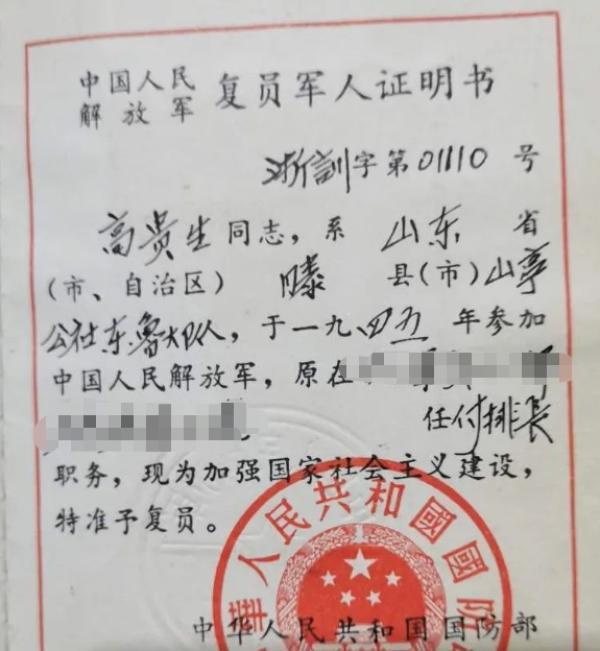 中国人民
解放军 复员军人证明书
浙訓字第01110号
高贵生同志，系 山东 省
(市、自治区) 滕 县(市)山亭
公社东鲁大队，于一九四五年参加
中国人民解放军，原在
任付排长
职务，现为加强国家社会主义建设，
特准予复员。
中华人民共和國國防
中华人民共和国国防部